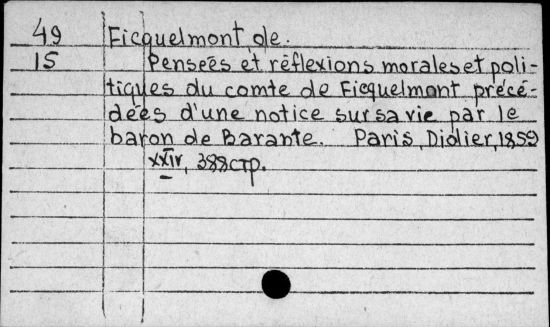 49 Ficquelmont, de.
15 Pensées et réflexions morales et poli-
tiques du comte de Ficquelmont précé-
dées d'une notice sur sa vie par le
baron de Barante. Paris, Didier, 1859
XXIV, 388 стр.